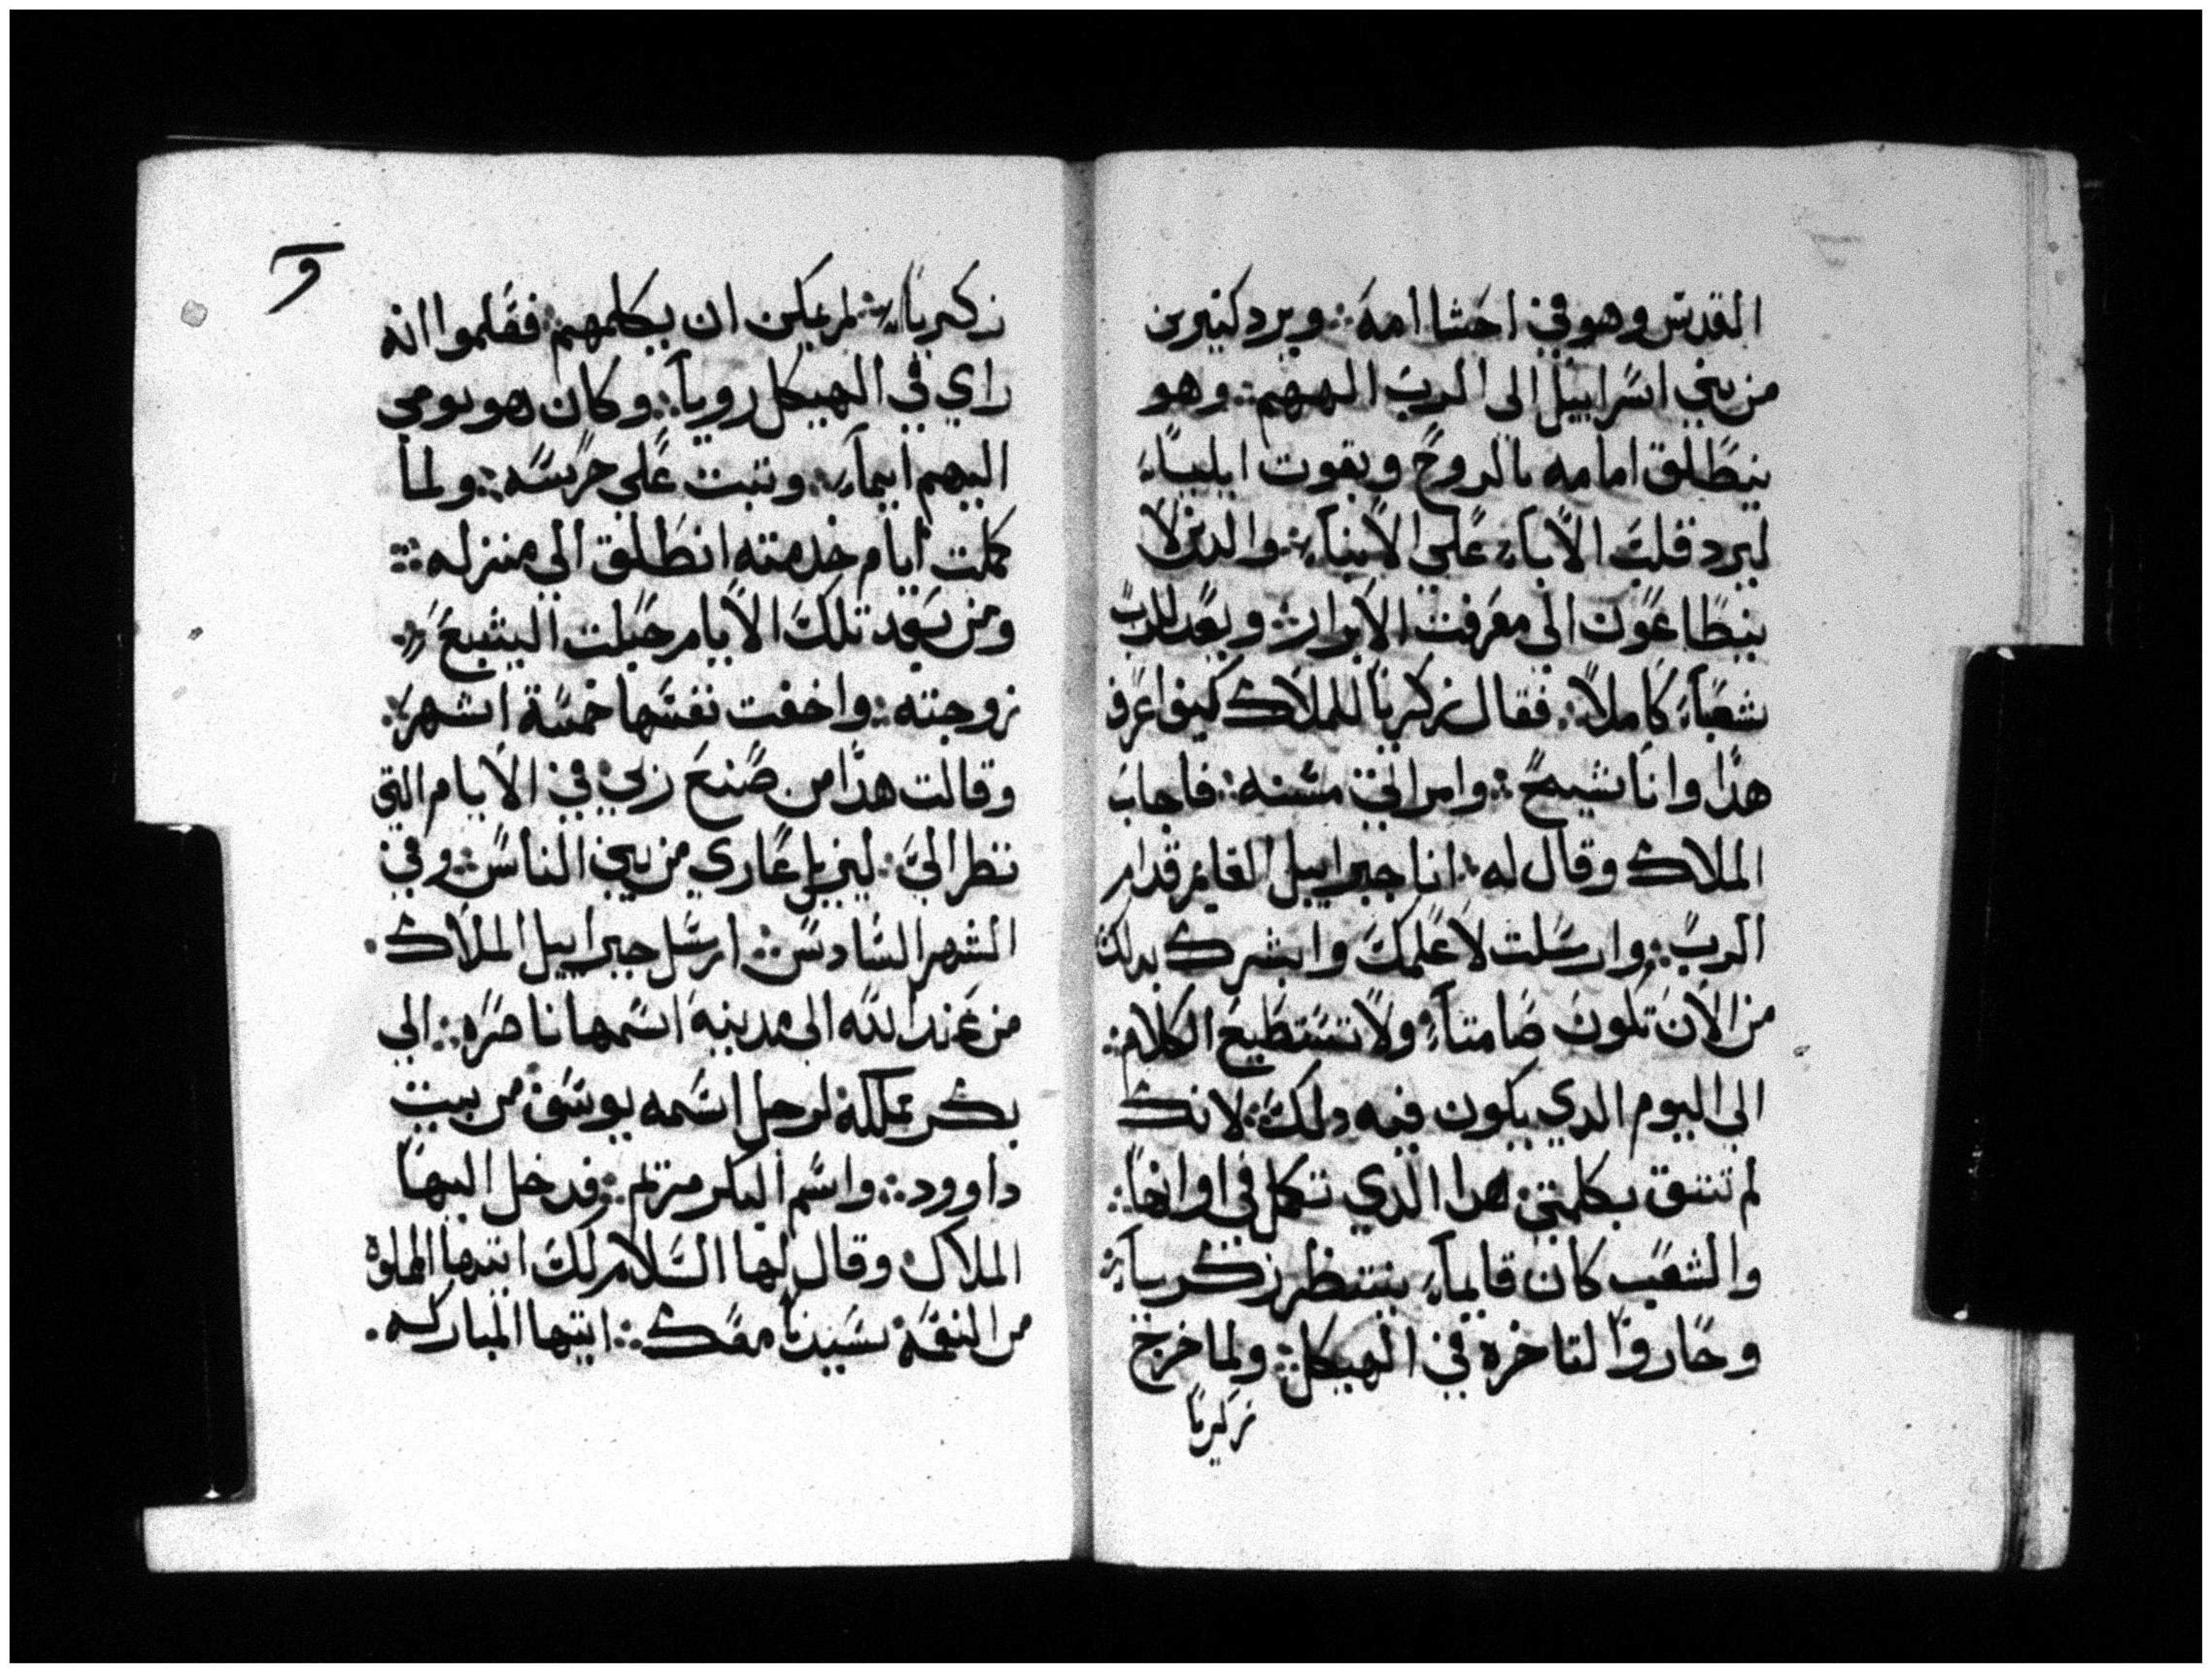 القدس وهو في احشا امه ∴ ويرد كتيرين
من بني اسراييل الى الرب الههم ∴ وهو
ينطلق امامه بالروح وبقوت ايلياء
ليرد قلب الاباء على الابناء ∴ والدين لا
ينطاعون الى معرفت الابرار ∴ ويعد للرب
شعباً كاملاً ∴ فقال زكريا للملاك كيف اعرف
هدا وانا شيخ ∴ وامراتي مسنه ∴ فاجاب
الملاك وقال له ∴ انا جبراييل القايم قدام
الرب ∴ وارسلت لاعلمك وابشرك بدلك
من الان تكون صامتاً ولا تستطيع الكلام ∴
الى اليوم الدي يكون فيه دلك ∴ لانك
لم تتق بكلمتي هدا الدي تكمل في اوانها ∴
والشعب كان قايماً ينتظر زكريا ∴
وحاروا لتاخره في الهيكل ∴ ولما خرج
زكريا
و
زكرياء ∴ لم يمكن ان يكلمهم ∴ فعلموا انه
راي في الهيكل رويا ∴ وكان هو يومي
اليهم ايماء ∴ وتبت على خرسه ∴ ولما
كملت ايام خدمته انطلق الي منزله ∴
ومن بعد تلك الايام حبلت اليشبع
زوجته ∴ واخفت نفسها خمسة اشهر ∴
وقالت هدا من صنع ربي في الايام التي
نظر الي ∴ ليزيل عاري من بين الناس ∴ وفي
الشهر السادس ∴ ارسل جبراييل الملاك ٠
من عند الله الى مدينه اسمها ناصره ∴ الي
بكر مملكة لرجل اسمه يوسف من بيت
داوود ∴ واسم البكر مريم ∴ فدخل اليها
الملاك وقال لها السلام لك ايتها الملوة
من النعمة سيدنا معك ∴ ايتها المباركه ٠